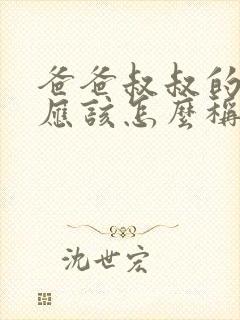 爸爸叔叔的
應該怎麼稱
沈世宏